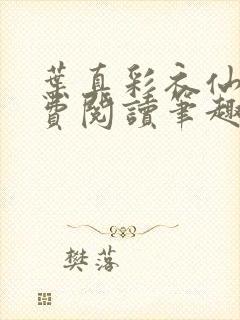 葉真彩衣仙
費閱讀筆趣
樊落